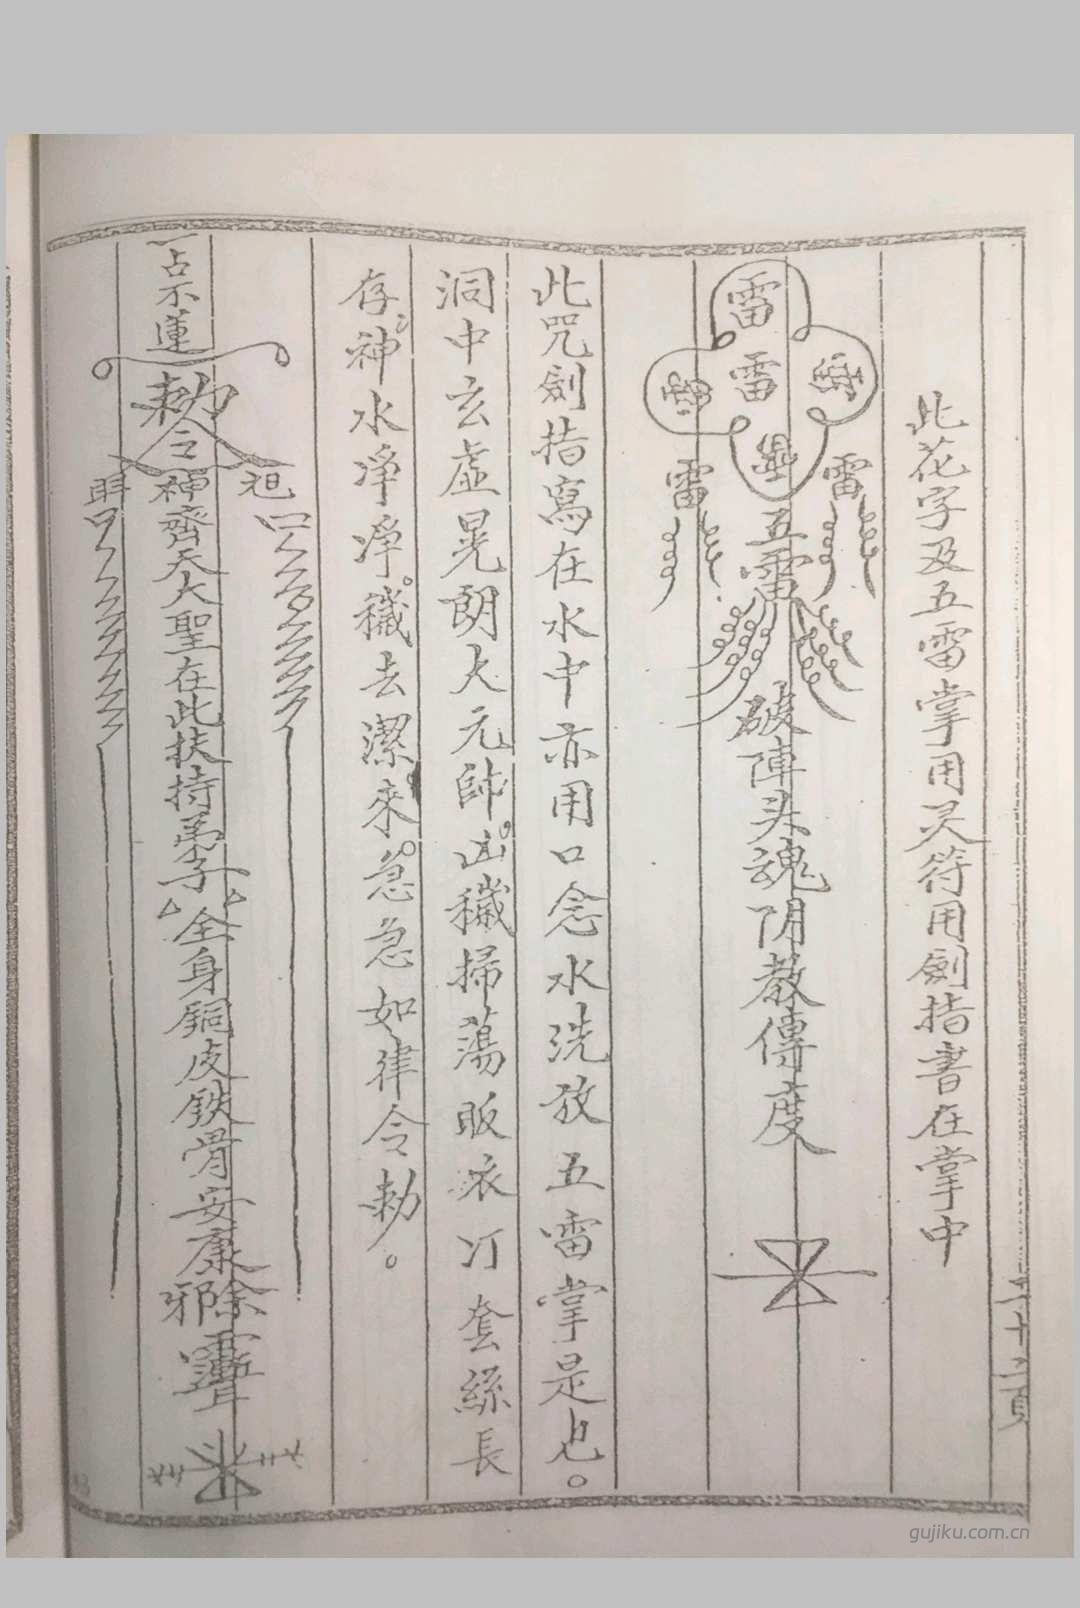 五十二頁
此花字及五雷掌用灵符用劍指書在掌中
雷
雷
雷
雷
五雷
破陣头魂阴教傳度
此咒劍指寫在水中亦用口念水洗放五雷掌是也。
洞中玄虛晃朗大元帥。凶穢掃蕩皈依冘套絲長
存。神水凈凈。穢去潔來。急急如律令勅。
一占不蓮
勅令
神齊天大聖在此扶持弟子全身銅皮鉄骨安康除邪
gujiku.com.cn